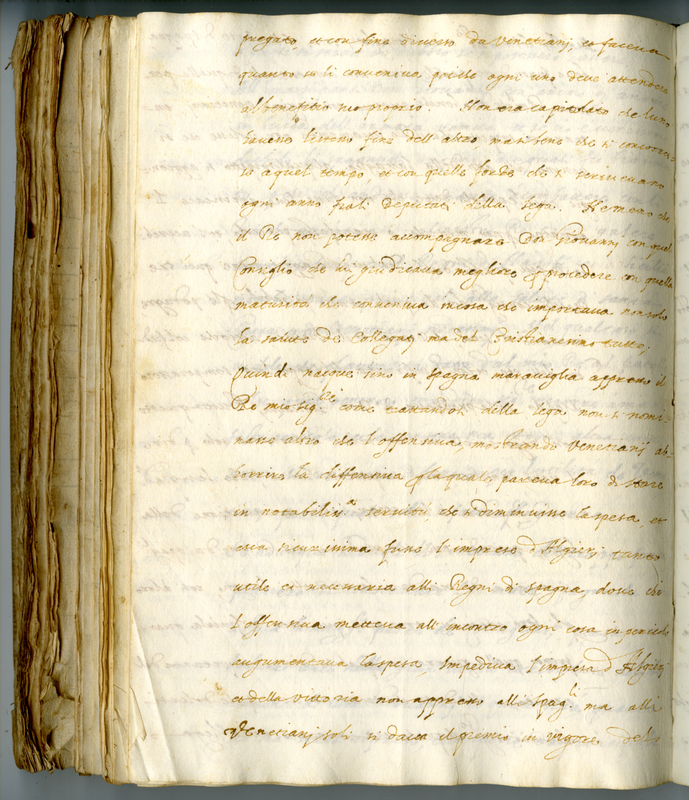 pregato, et con fine diverso da Venetiani, et faceva
quanto se li conveniva poiche ogni uno deve attendere
al benefitio suo proprio. Non era capitolato che l'uno
havesse l'istesso fine dell'altro, ma si bene che si
a quel tempo, et con quelle forze che si
ogni anno fra li Deputati della lega. Nemeno che
il Re non potesse accompagnare Don Giovanni con quel
Consiglio che lui giudicava megliore et procedere con quella
maturità che conveniva in cosa che importava non solo
la salute de Collegati ma del Cristianesimo tutto;
Quindi nacque sino in spagna maraviglia appresso il
Re mio sig.re come trattandosi della lega non si nomi-
nasse altro che l'offensiva, mostrando Venetiani ab-
horrire la diffensiva p laquale pareva loro di stare
in notabiliss.a servitù, che si diminuisse la spesa, et
era sicurissima fusse l'impresa d'Algieri, tanto
utile et necessaria alli Regni di spagna, dove che
l'offensiva metteva all'incontro ogni cosa in pericolo
augumentava la spesa, impediva l'impresa d'Algieri
et della vittoria non appresso alli spag.li ma alli
Venetiani soli si dava il premio in vigore del